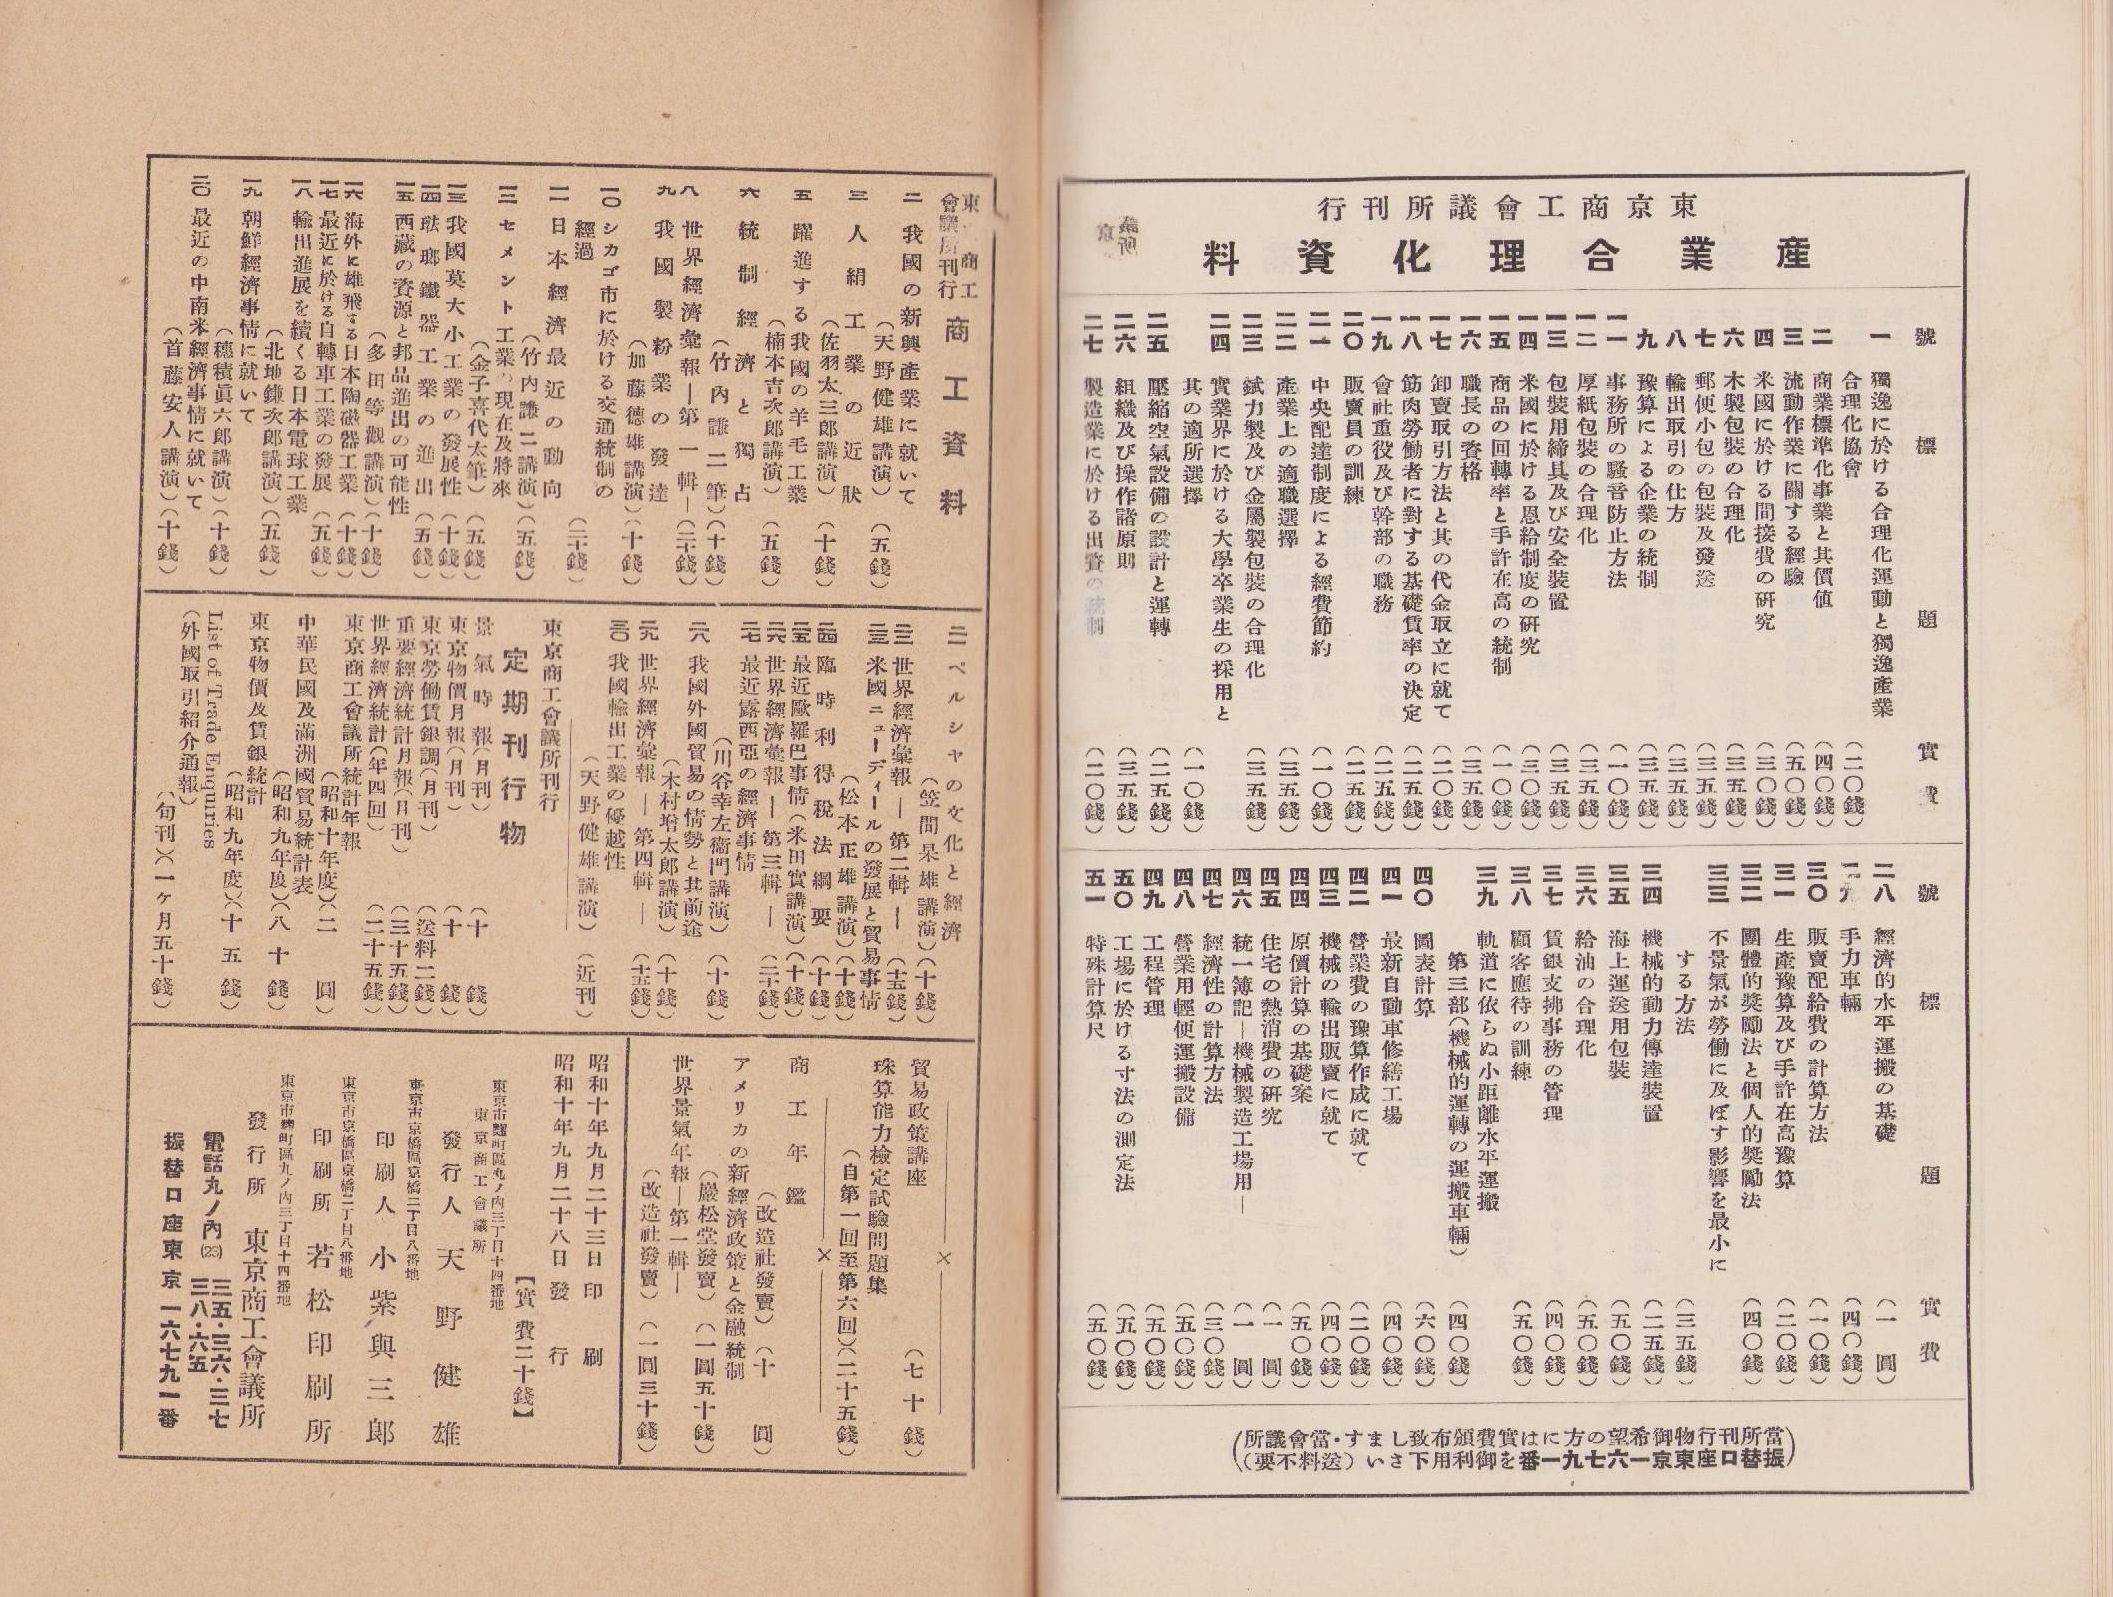 東京商工會議所刊行
産業合理化資料
號 標題 實費
一 獨逸に於ける合理化運動と獨逸產業
合理化協會 (二〇錢)
二 商業標準化事業と其價値 (四〇錢)
三 流動作業に關する經驗 (五〇錢)
四 米國に於ける間接費の研究 (三〇錢)
六 木製包裝の合理化 (三五錢)
七 郵便小包の包裝及發送 (三五錢)
八 輸出取引の仕方 (三五錢)
九 豫算による企業の統制 (三五錢)
一一 事務所の騷音防止方法 (一〇錢)
一二 厚紙包裝の合理化 (三五錢)
一三 包裝用締具及び安全裝置 (三五錢)
一四 米國に於ける恩給制度の研究 (三〇錢)
一五 商品の回轉率と手許在高の統制 (一〇錢)
一六 職長の資格 (三五錢)
一七 卸賣取引方法と其の代金取立に就て (二〇錢)
一八 筋肉勞働者に對する基礎賃率の決定 (二五錢)
一九 會社重役及び幹部の職務 (二五錢)
二〇 販賣員の訓練 (二五錢)
二一 中央配達制度による經費節約 (一〇錢)
二二 產業上の適職選擇 (三五錢)
二三 鉞力製及び金屬製包裝の合理化 (三五錢)
二四 實業界に於ける大學卒業生の採用と
其の適所選擇 (一〇錢)
二五 壓縮空氣設備の設計と運轉 (二五錢)
二六 組織及び操作諸原則 (三五錢)
二七 製造業に於ける出費の統制 (二〇錢)
號 標題 實費
二八 經濟的水平運搬の基礎 (一圓)
二九 手力車輛 (四〇錢)
三〇 販賣配給費の計算方法 (一〇錢)
三一 生產豫算及び手許在高豫算 (二〇錢)
三二 團體的奬勵法と個人的奬勵法 (四〇錢)
三三 不景氣が勞働に及ぼす影響を最小に
する方法 (三五錢)
三四 機械的動力傳達裝置 (二五錢)
三五 海上運送用包裝 (五〇錢)
三六 給油の合理化 (五〇錢)
三七 賃銀支拂事務の管理 (四〇錢)
三八 顧客應待の訓練 (五〇錢)
三九 軌道に依らぬ小距離水平運搬
第三部(機械的運轉の運搬車輛) (四〇錢)
四〇 圖表計算 (六〇錢)
四一 最新自動車修繕工場 (四〇錢)
四二 營業費の豫算作成に就て (二〇錢)
四三 機械の輸出販賣に就て (四〇錢)
四四 原價計算の基礎案 (五〇錢)
四五 住宅の熱消費の研究 (一圓)
四六 統一簿記―機械製造工場用― (一圓)
四七 經濟性の計算方法 (三〇錢)
四八 營業用輕便運搬設備 (五〇錢)
四九 工程管理 (五〇錢)
五〇 工場に於ける寸法の測定法 (五〇錢)
五一 特殊計算尺 (五〇錢)
(當所刊行物御希望の方には實費頒布致します・當會議所
振替口座東京一六七九一番を御利用下さい(送料不要))
東京商工會議所刊行 商工資料
二 我國の新興產業に就いて
(天野健雄講演) (五錢)
三 人絹工業の近狀
(佐羽太三郎講演) (十錢)
五 躍進する我國の羊毛工業
(楠本吉次郎講演) (五錢)
六 統制經濟と獨占
(竹內謙二筆) (十錢)
八 世界經濟彙報―第一輯― (二十錢)
九 我國製粉業の發達
(加藤德雄講演) (十錢)
一〇 シカゴ市に於ける交通統制の
經過 (二十錢)
一一 日本經濟最近の動向
(竹內謙二講演) (五錢)
一二 セメント工業の現在及將來
(金子喜代太筆) (五錢)
一三 我國莫大小工業の發展性 (十錢)
一四 琺瑯鐵器工業の進出 (五錢)
一五 西藏の資源と邦品進出の可能性
(多田等觀講演) (十錢)
一六 海外に雄飛する日本陶磁器工業 (十錢)
一七 最近に於ける自轉車工業の發展 (五錢)
一八 輸出進展を續くる日本電球工業
(北地鎌次郎講演) (五錢)
一九 朝鮮經濟事情に就いて
(穗積眞六郎講演) (十錢)
二〇 最近の中南米經濟事情に就いて
(首藤安人講演) (十錢)
二一 ペルシャの文化と經濟
(笠間杲雄講演) (十錢)
二二 世界經濟彙報―第二輯― (十五錢)
二三 米國ニューディールの發展と貿易事情
(松本正雄講演) (十錢)
二四 臨時利得稅法綱要 (十錢)
二五 最近歐羅巴事情(米田實講演) (十錢)
二六 世界經濟彙報―第三輯― (二十錢)
二七 最近露西亞の經濟事情
(川谷幸左衞門講演) (十錢)
二八 我國外國貿易の情勢と其前途
(木村增太郎講演) (十錢)
二九 世界經濟彙報―第四輯― (十五錢)
三〇 我國輸出工業の優越性
(天野健雄講演) (近刊)
東京商工會議所刊行
定期刊行物
景氣時報(月刊) (十錢)
東京物價月報(月刊) (十錢)
東京勞働賃銀調(月刊) (送料二錢)
重要經濟統計月報(月刊) (三十五錢)
世界經濟統計(年四回) (二十五錢)
東京商工會議所統計年報
(昭和十年度) (二圓)
中華民國及滿洲國貿易統計表
(昭和九年度) (八十錢)
東京物價及賃銀統計
(昭和九年度) (十五錢)
List of Trade Enquries
(外國取引紹介通報)
(旬刊)(一ヶ月五十錢)
×
貿易政策講座 (七十錢)
珠算能力檢定試驗問題集
(自第一回至第六回)(二十五錢)
×
商工年鑑
(改造社發賣) (十圓)
アメリカの新經濟政策と金融統制
(巖松堂發賣) (一圓五十錢)
世界景氣年報―第一輯―
(改造社發賣) (一圓三十錢)
昭和十年九月二十三日印刷
昭和十年九月二十八日發行
【實費二十錢】
東京市麴町區丸ノ內三丁目十四番地
東京商工會議所
發行人 天野健雄
東京市京橋區京橋二丁目八番地
印刷人 小紫與三郎
東京市京橋區京橋二丁目八番地
印刷所 若松印刷所
東京市麴町區丸ノ內三丁目十四番地
發行所 東京商工會議所
電話丸ノ內(23) 三五・三六・三七
三八・六五
振替口座東京一六七九一番